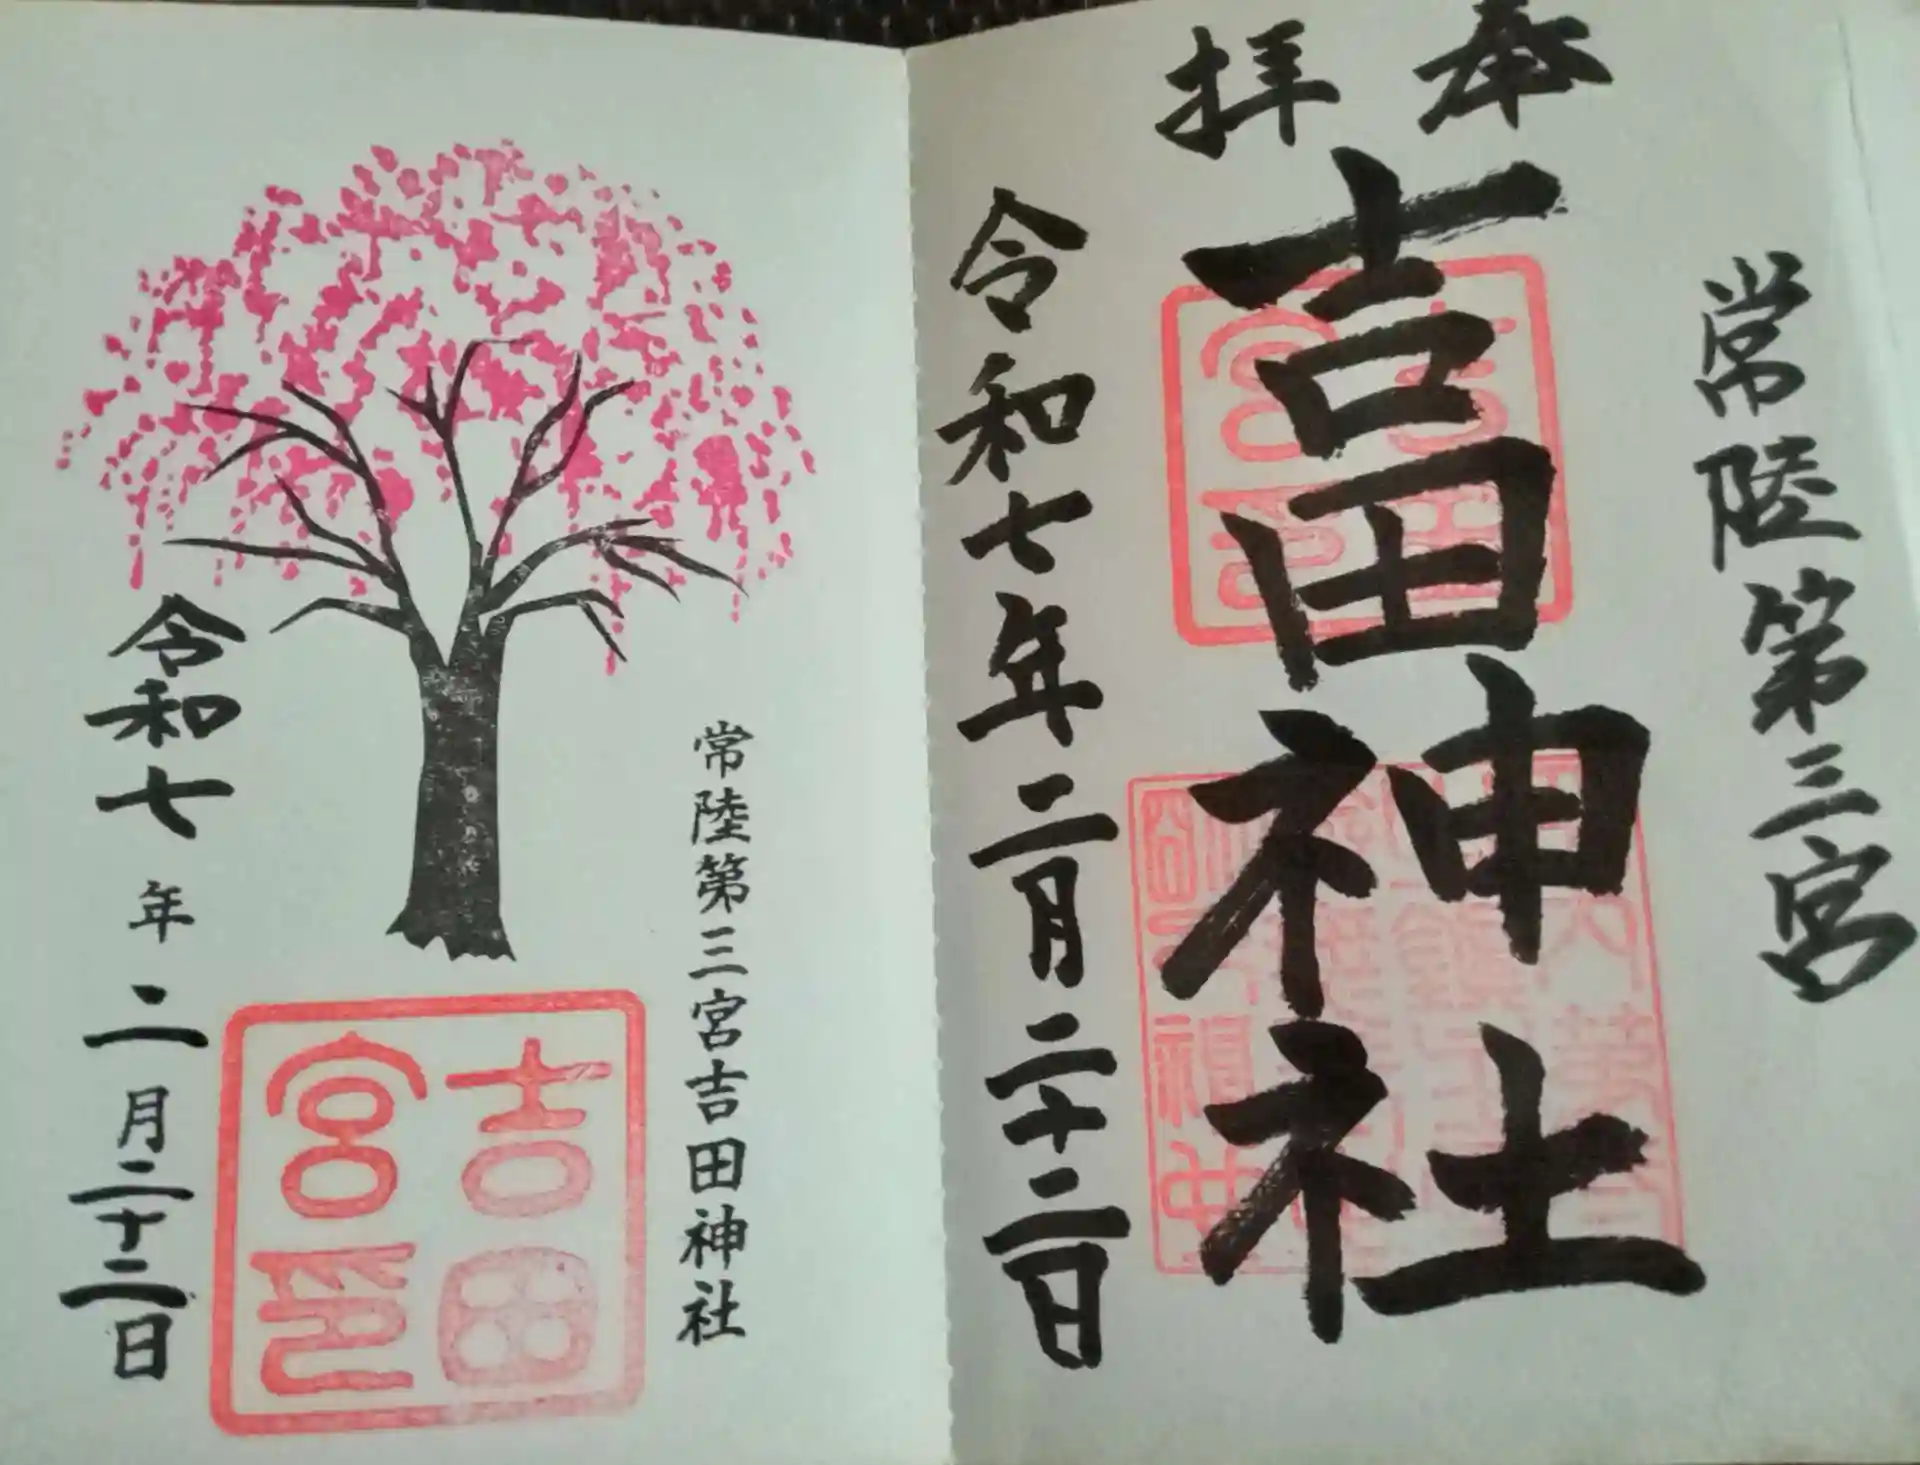 奉拝
常陸第三宮
吉田神社
令和七年二月二十二日
常陸第三宮吉田神社
吉田
宮印
令和七年二月二十二日